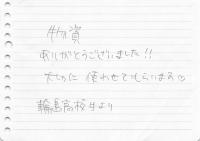 物資
ありがとうございました!!
大切に 使わせてもらいます♡
輪島高校生より